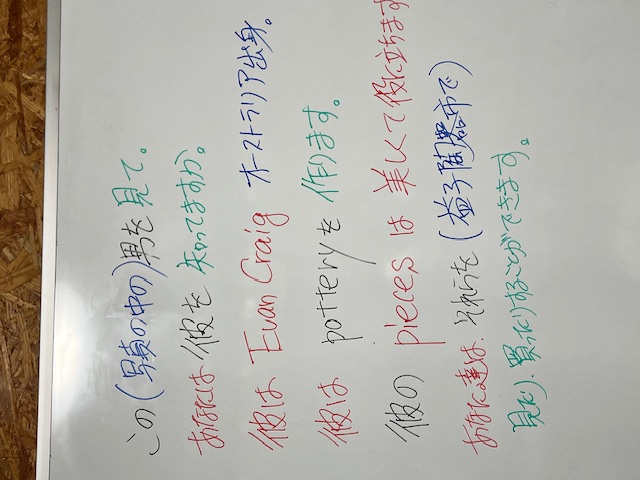 この(写真の中の)男を見て。
あなたは彼を知ってますか。
彼は Evan Craig オーストラリア出身。
彼は potteryを作ります。
彼の pieces は 美しくて役に立ちます
あなた達は、それらを(益子陶器市で)
見たり、買ったりすることができます。